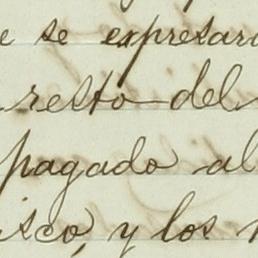 e se expresar
resto del
pagado al
isco, y los